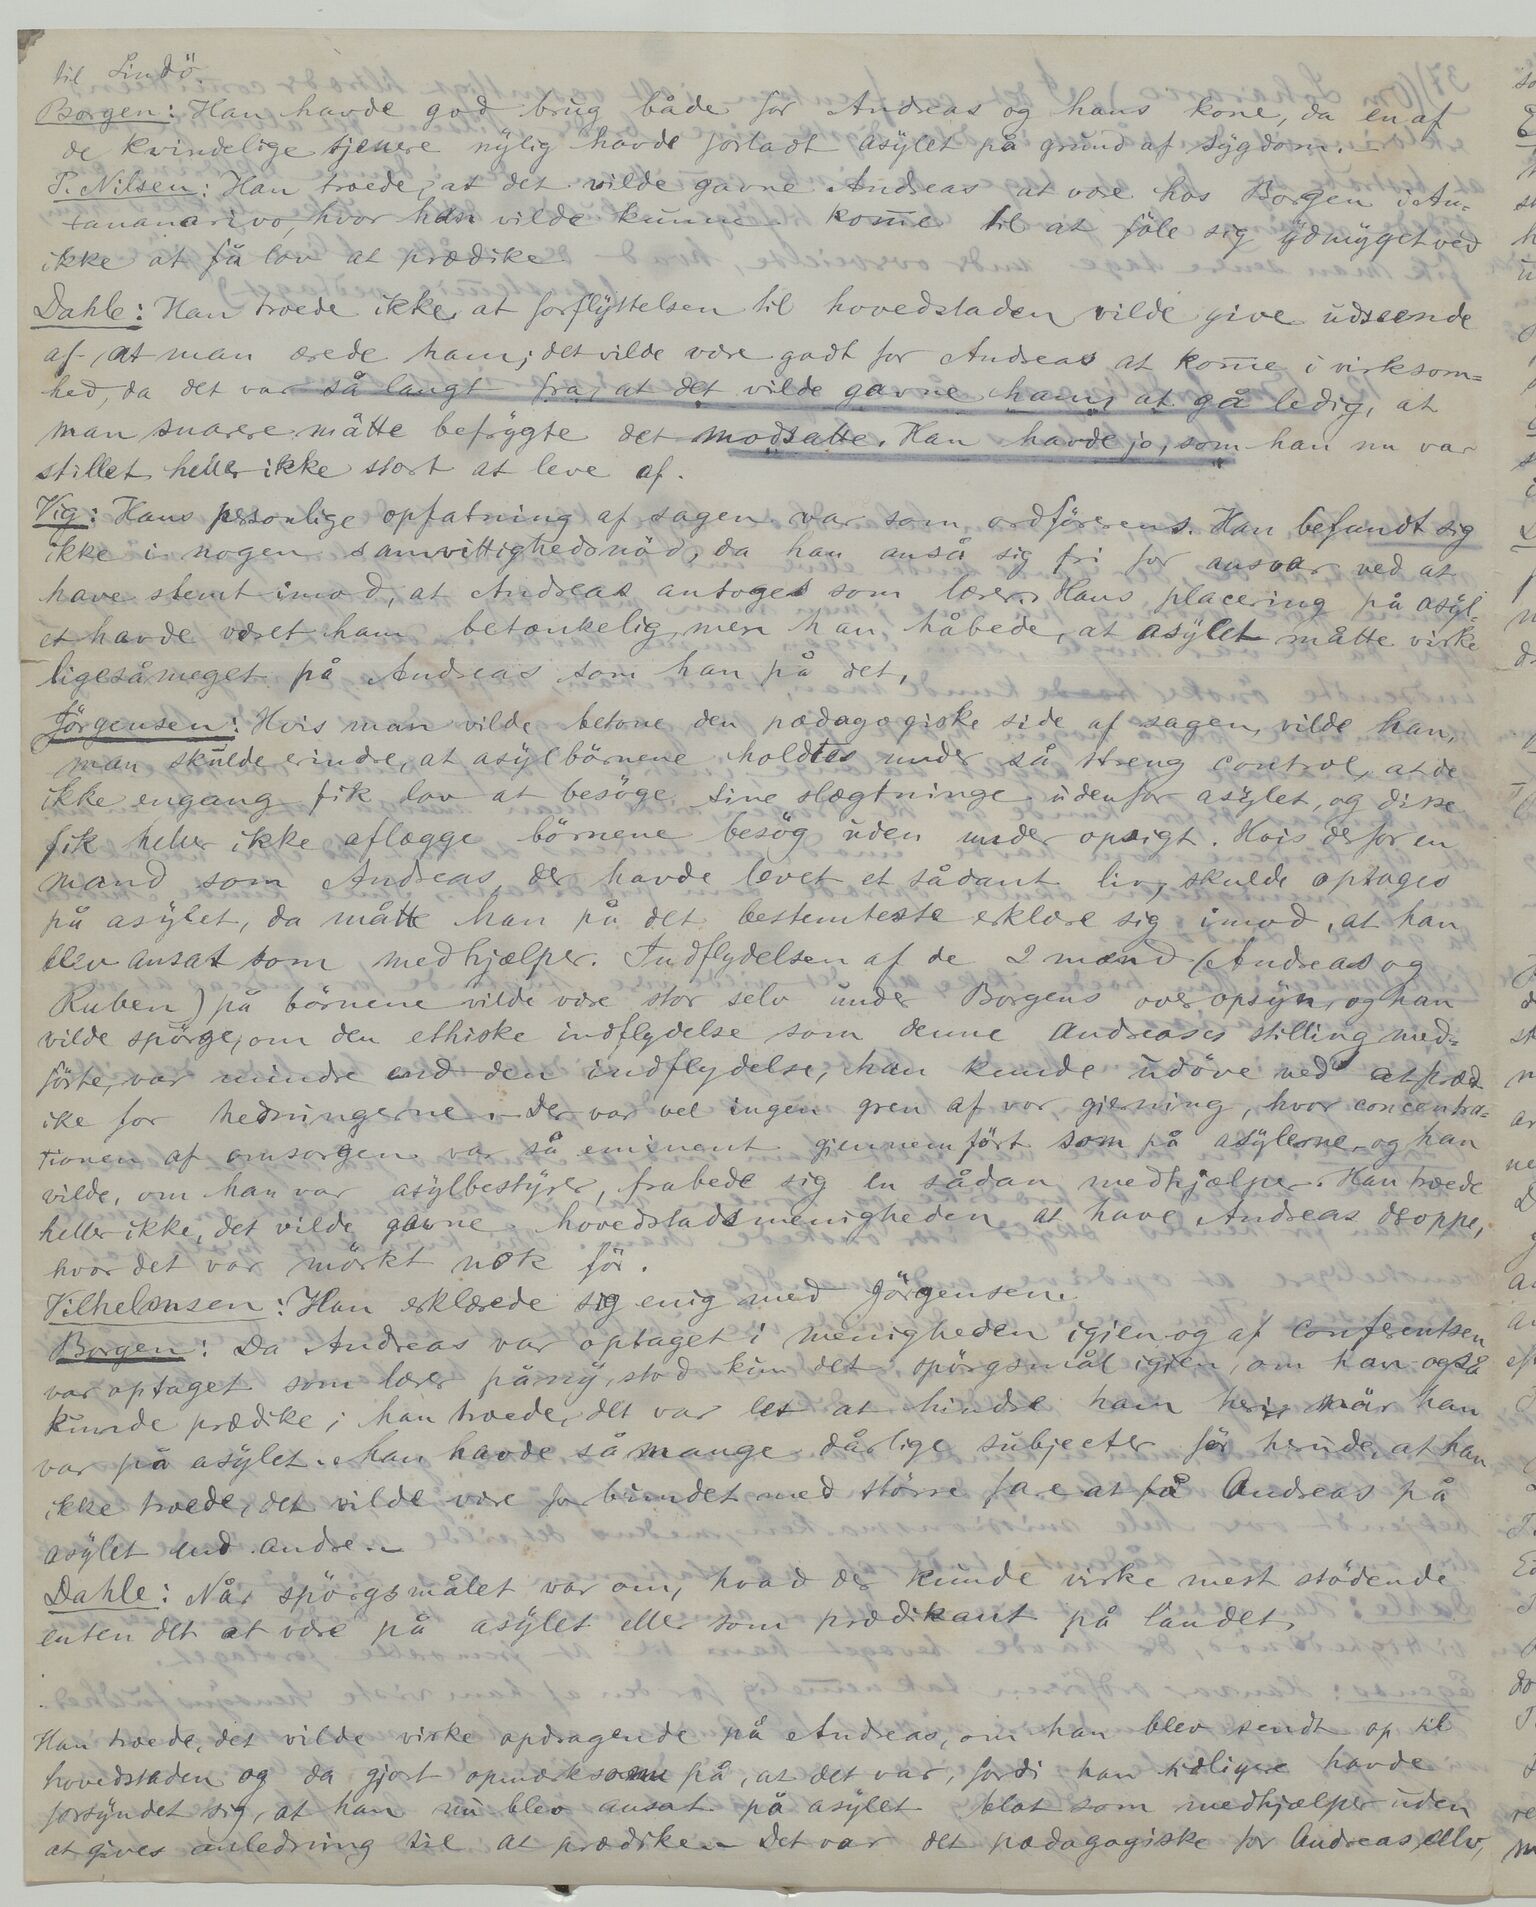 til Lindö.
Borgen: Han havde god brug både for Andreas og hans kone, da en af
de kvindelige tjenere nylig havde forladt asylet på grund af sygdom. –
P. Nilsen: Han troede, at det vilde gavne Andreas at være hos Borgen i An-
tananarivo, hvor han vilde kunne kom̅e til at föle sig ydmyget ved
ikke at få lov at prædike.
Dahle: Han troede ikke, at forflyttelsen til hovedstaden vilde give udseende
af at man ærede ham; det vilde være godt for Andreas at kom̅e i virksom=
hed, da det var så langt fra, at det vilde gavne ham, at gå ledig, at
man snarere måtte befrygte det modsatte. Han havde jo, som han nu var
stillet heller ikke stort at leve af.
Vig: Hans personlige opfatning af sagen var som ordförerens. Han befandt sig
ikke i nogen samvittighedsnöd, da han anså sig fri for ansvar ved at
have stemt imod, at Andreas antoges som lærer. Hans placering på asyl-
et havde været ham betænkelig, men han håbede, at asylet måtte virke
ligesåmeget på Andreas som han på det.
Jörgensen: Hvis man vilde betone den pædagogiske side af sagen, vilde han,
man skulde erindre, at asylbörnene holdtes under så streng control, at de
ikke engang fik lov at besöge sine slægtninge udenfor asylet, og disse
fik heller ikke aflægge börnene besög uden under opsigt. Hvis derfor en
mand som Andreas, der havde levet et sådant liv, skulde optages
på asylet, da måtte han på det bestemteste erklære sig imod, at han
blev ansat som medhjælper. Indflydelsen af de 2 mænd (Andreas og
Ruben) på börnene vilde være stor selv under Borgens overopsyn, og han
vilde spörge, om den ethiske indflydelse som denne Andreases stilling med-
förte, var mindre end den indflydelse, han kunde udöve ved at præd
ike for hedningerne. Der var vel ingen gren af vor gjerning, hvor concentra-
tionen af omsorgen var så eminent gjennemfört som på asylerne, og han
vilde, om han var asylbestyrer, frabede sig en sådan medhjælper. Han troede
heller ikke, det vilde gavne hovedstadsmenigheden at have Andreas deroppe,
hvor det var mörkt nok för.
Vilhelmsen: Han erklærede sig enig med Jörgensen.
Borgen: Da Andreas var optaget i menigheden igjen og af conferentsen
var optaget som lærer påny, stod kun det spörgsmål igjen, om han også
kunde prædike; han troede, det var let at hindre ham heri, når han
var på asylet. Man havde så mange dårlige subjecter för herude, at han
ikke troede, det vilde være forbundet med större fare at få Andreas på
asylet end andre. –
Dahle: Når spörgsmålet var om, hvad der kunde virke mest stödende
enten det at være på asylet eller som prædikant på landet,
Han troede, det vilde virke opdragende på Andreas, om han blev sendt op til
hovedstaden og da gjort opmærksom på, at det var, fordi han tidligere havde
forsyndet sig, at han nu blev ansat på asylet blot som medhjælper uden
at gives anledning til at prædike. – Det var det pædagogiske for Andreas selv,